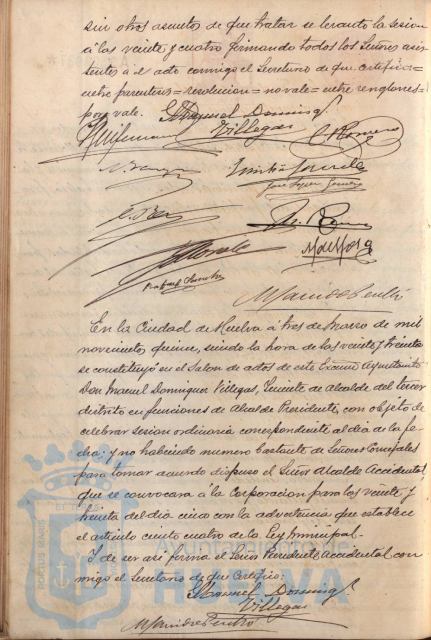 sin otros asuntos de que tratar se levantó la sesion
á las veinte y cuatro firmando todos los Señores asis-
tentes á el acto conmigo el Secretario de que certifico=
entre parentesis= resolucion= no vale= entre renglones=
por vale.
Manuel Doming
Villegas
C. Romero
Rafael Sanchez
En la Ciudad de Huelva á tres de Marzo de mil
novecientos quince, siendo la hora de las veinte y treinta
se constituyó en el Salon de actos de este Excmo Ayuntamto
Don Manuel Dominguez Villegas, Teniente de Alcalde del tercer
distrito en funciones de Alcalde Presidente, con objeto de
celebrar sesion ordinaria correspondiente al dia de la fe-
cha: y no habiendo numero bastante de Señores Concejales
para tomar acuerdo dispuso el Señor Alcalde Accidental,
que se convocara á la Corporacion para los veinte y
treinta del dia cinco con la advertencia que establece
el articulo ciento cuatro de la Ley Municipal.
Y de ser asi firma el Señor Presidente Accidental con
migo el Secretario de que Certifico:
Manuel Doming
Villegas
HUELVA